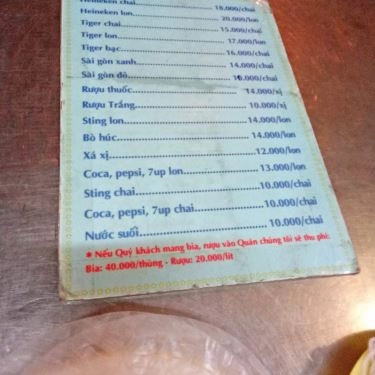 Heineken chai 18.000/chai
Heineken lon 20.000/lon
Tiger chai 15.000/chai
Tiger lon 17.000/lon
Tiger bạc 16.000/chai
Sài gòn xanh 14.000/chai
Sài gòn đỏ 10.000/chai
Rượu thuốc 14.000/xị
Rượu Trắng 10.000/xị
Sting lon 14.000/lon
Bò húc 14.000/lon
Xá xị 12.000/lon
Coca, pepsi, 7up lon 13.000/lon
Sting chai 10.000/chai
Coca, pepsi, 7up chai 10.000/chai
Nước suối 10.000/chai
* Nếu Quý khách mang bia, rượu vào Quán chúng tôi sẽ thu phí:
Bia: 40.000/thùng - Rượu: 20.000/lít